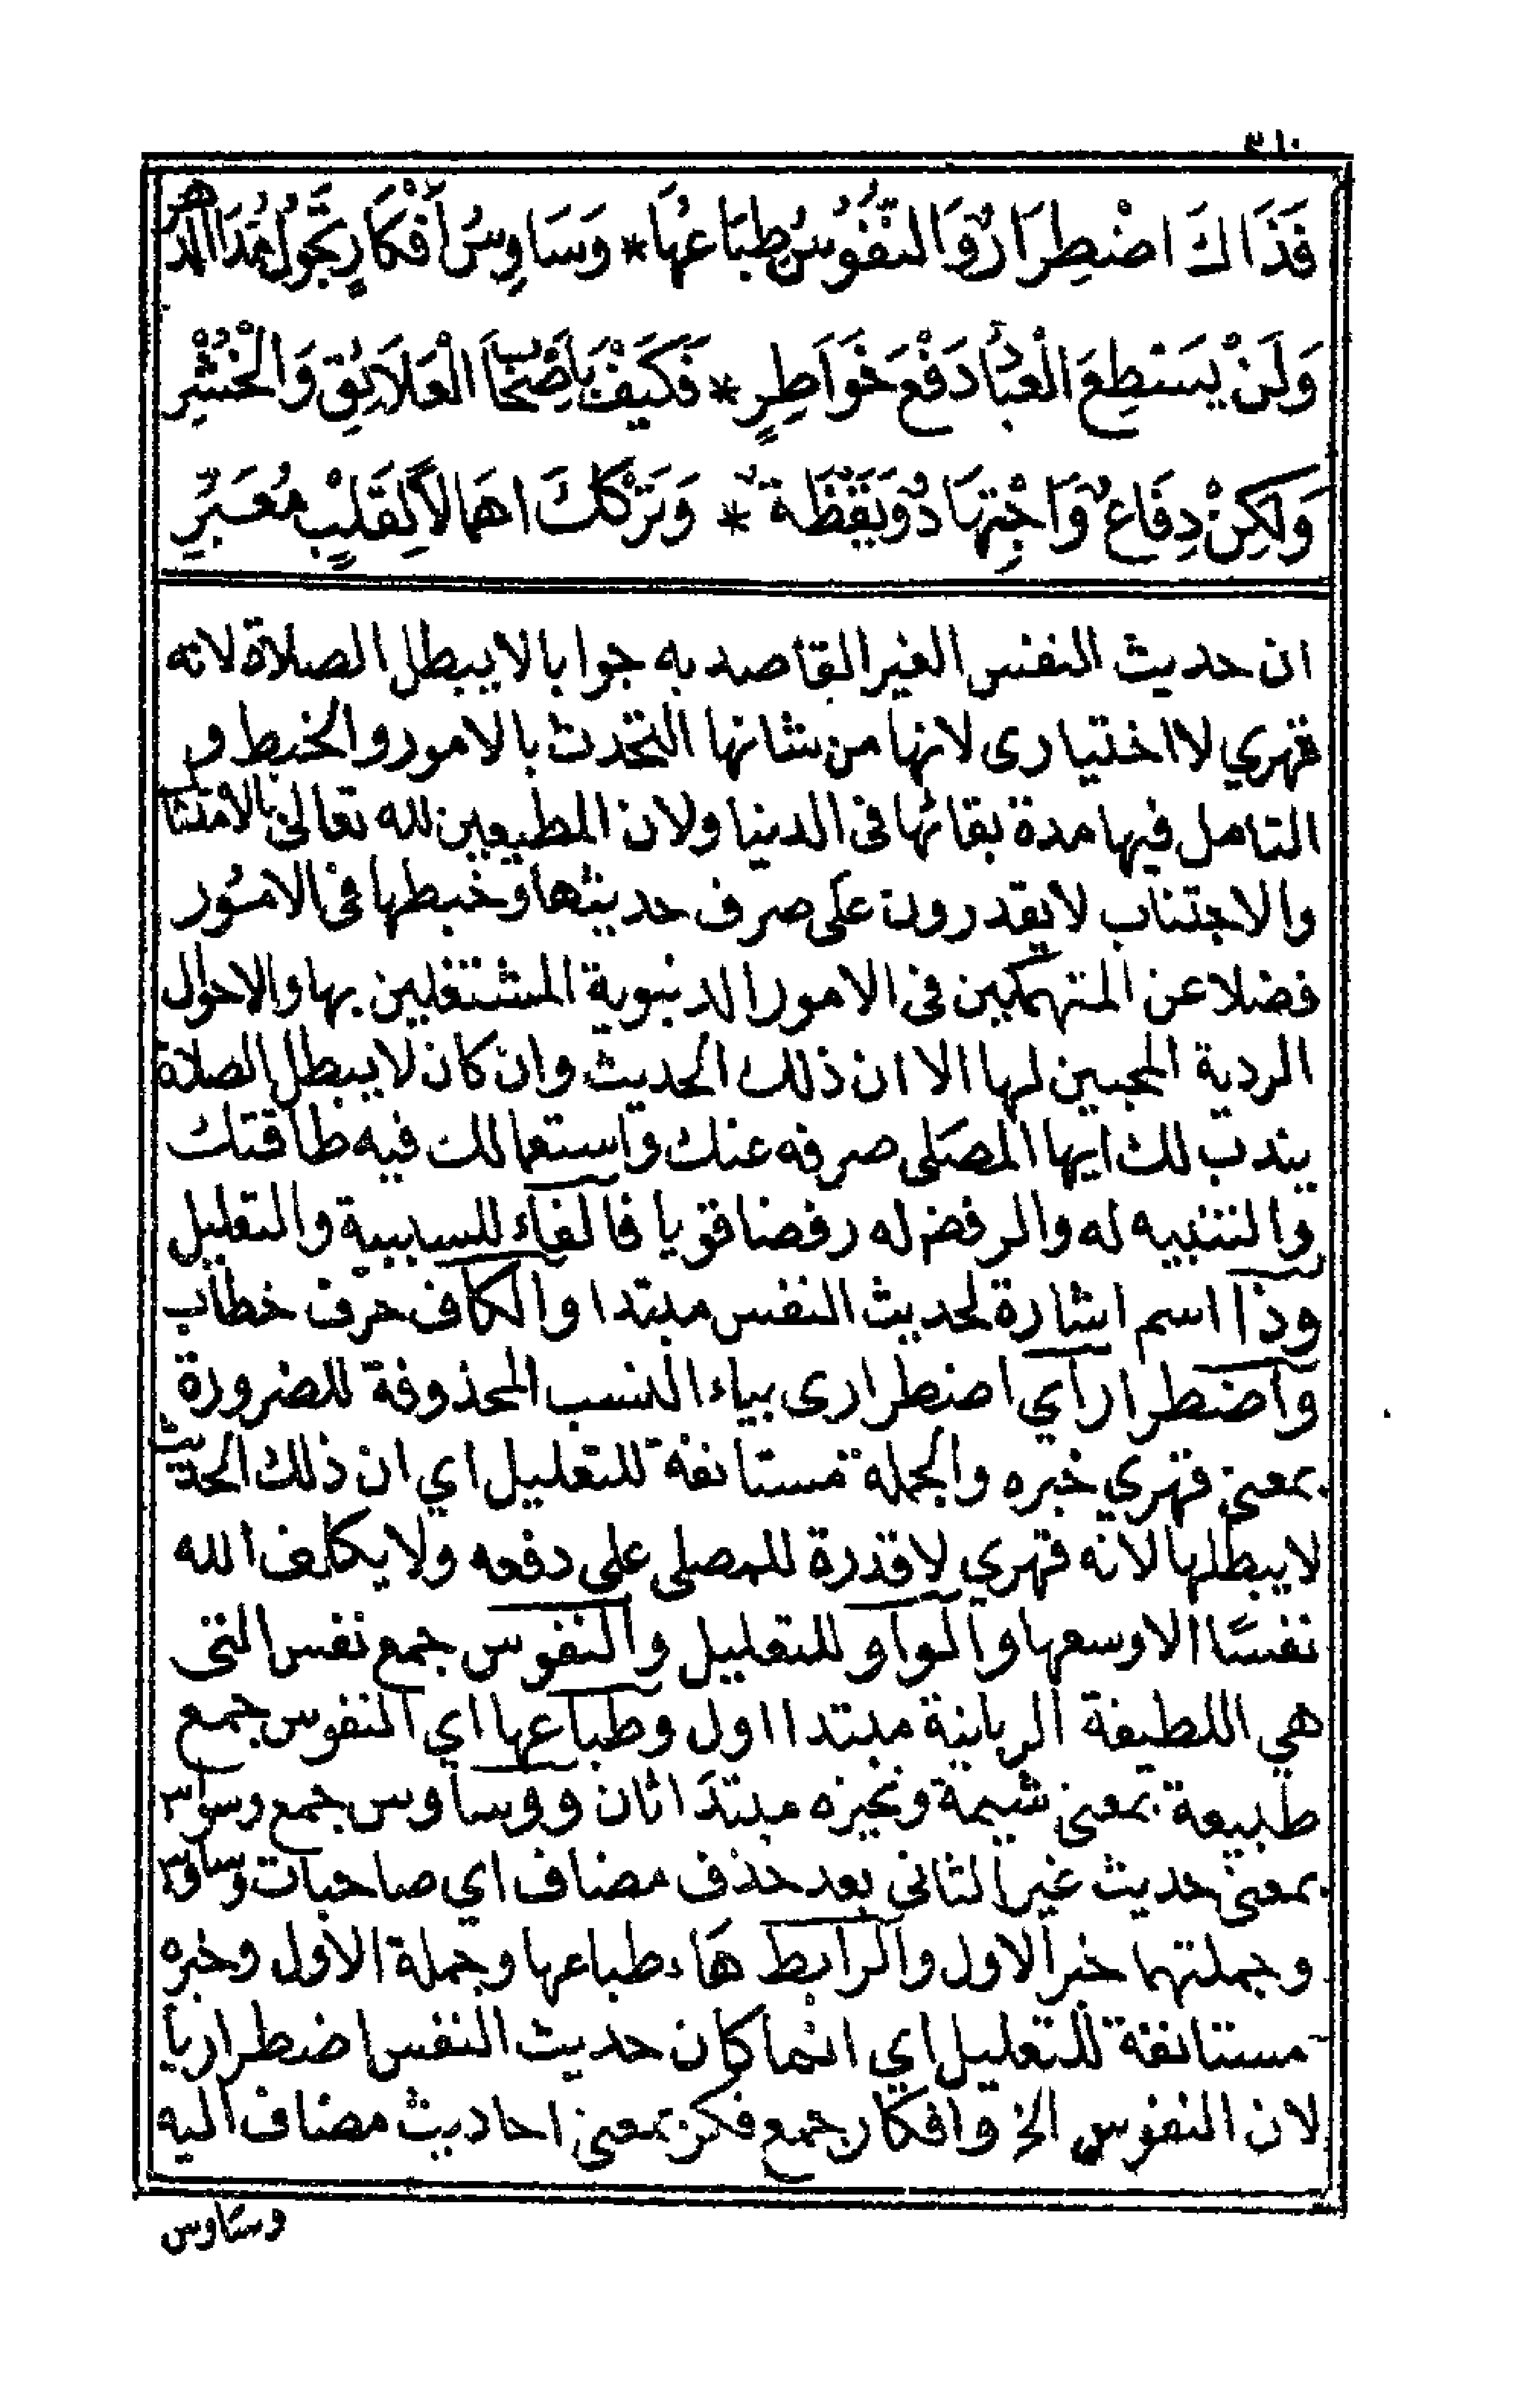 ٣١٠
فَذَاكَ اضْطِرَارٌ وَالنُّفُوسُ طِبَاعُهَا * وَسَاوِسُ أَفْكَارٍ تَجُولُ مُدَا الدَّهْرِ
وَلَنْ يَسْتَطِعَ الْعُبَّادُ دَفْعَ خَوَاطِرٍ * فَكَيْفَ بِأَصْحَابِ الْعَلَائِقِ وَالْخُشْرِ
وَلَكِنْ دِفَاعٌ وَاجْتِهَادٌ وَيَقْظَةٌ * وَتَرْكُكَ اهمَالًا لِقَلْبٍ مُعَبَّرِ
ان حديث النفس الغير القاصد به جوابا لا يبطل الصلاة لانه
قهري لا اختيارى لانها من شانها التحدث بالامور والخبط و
التامل فيها مدة بقائها فى الدنيا ولان المطيعين لله تعالى بالامتثال
والاجتناب لا يقدرون على صرف حديثها وخبطها فى الامور
فضلا عن المتهمكين فى الامور الدنيوية المشتغلين بها والاحوال
الردية المحبين لها الا ان ذلك الحديث وان كان لا يبطل الصلاة
يندب لك ايها المصلى صرفه عنك واستعمالك فيه طاقتك
والتنبيه له والرفض له رفضا قويا فالفاء للسببية والتعليل
وذا اسم اشارة لحديث النفس مبتدا والكاف حرف خطاب
واضطرار اي اضطرارى بياء النسب المحذوفة للضرورة
بمعنى قهري خبره والجملة مستانفة للتعليل اي ان ذلك الحديث
لا يبطلها لانه قهري لا قدرة للمصلى على دفعه ولا يكلف الله
نفسًا الا وسعها والواو للتعليل والنفوس جمع نفس التى
هي اللطيفة الربانية مبتدا اول وطباعها اي النفوس جمع
طبيعة بمعنى شيمة ونحيزه مبتدَا ثان ووساوس جمع وسواس
بمعنى حديث غير الثانى بعد حذف مضاف اي صاحبات وساوس
وجملتهما خبر الاول والرابط هَاء طباعها وجملة الاول وخبره
مستانفة للتعليل اي انما كان حديث النفس اضطراريا
لان النفوس الخ وافكار جمع فكر بمعنى احاديث مضاف اليه
وسَاوس